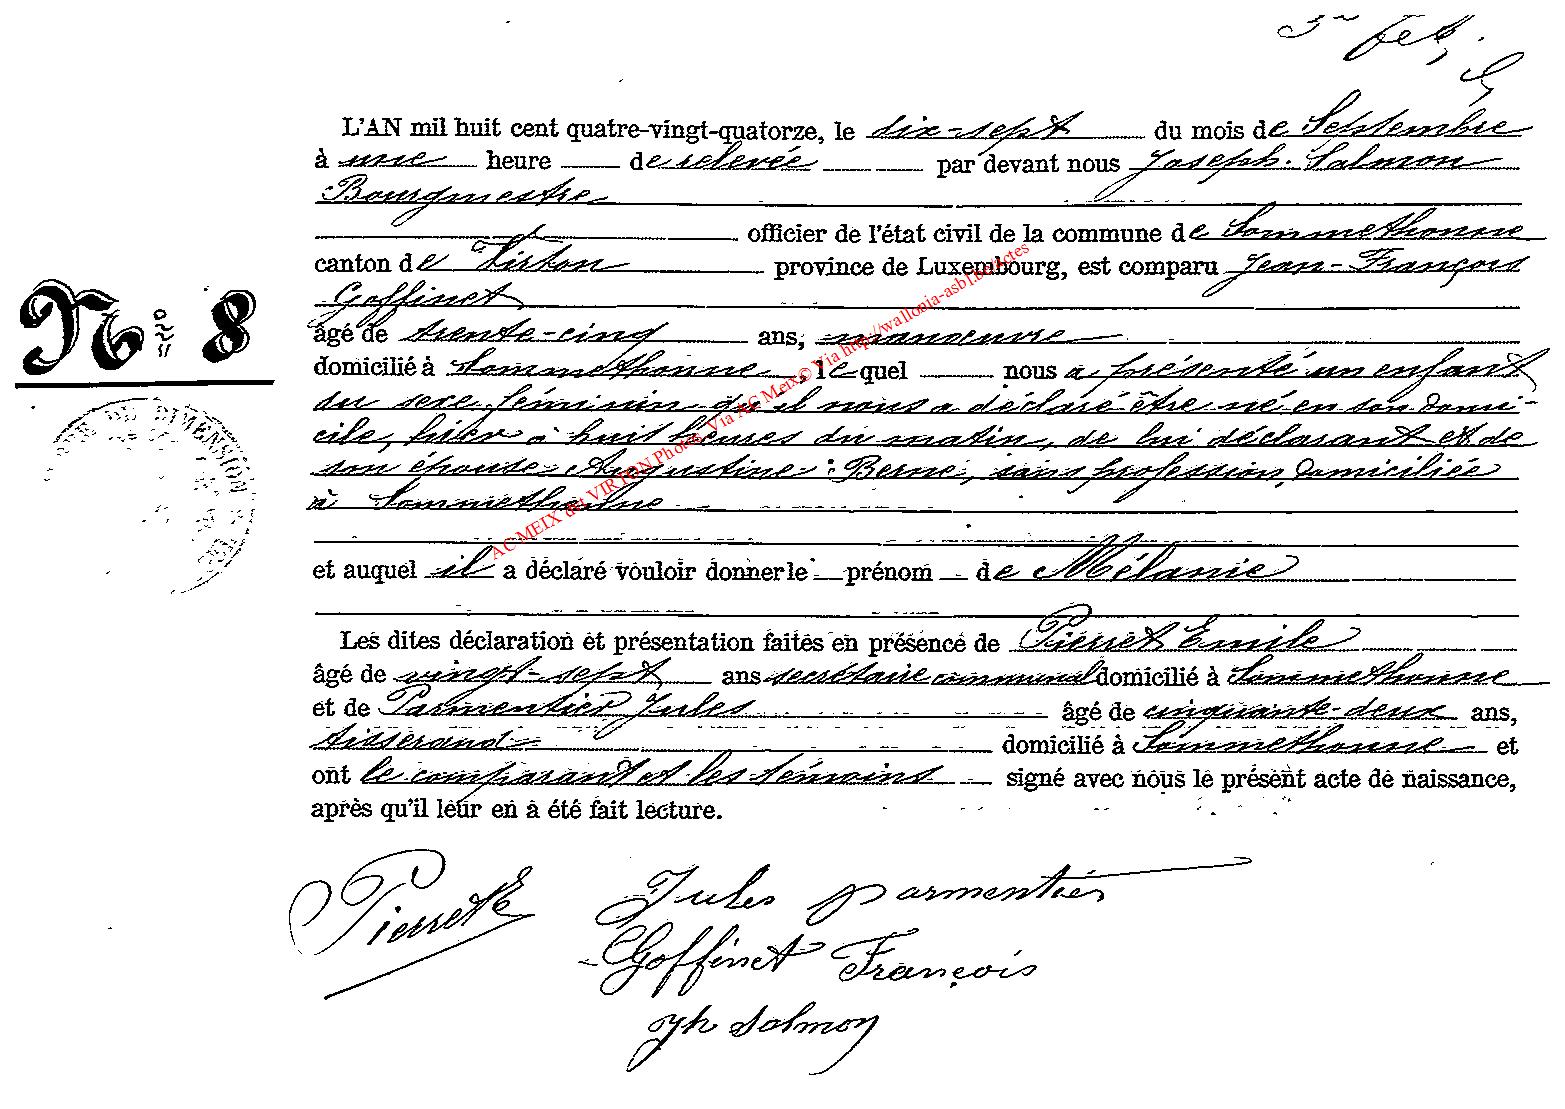 L'AN mil huit cent quatre-vingt-quatorze, le dix-sept du mois de Septembre
à une heure de relevée par devant nous Joseph Salmon
Bourgmestre
officier de l'état civil de la commune de Sommethonne
canton de Virton province de Luxembourg, est comparu Jean-François
Goffinet
N° 8
âgé de trente-cinq ans, manoeuvre
domicilié à Sommethonne, lequel nous a présenté un enfant
du sexe féminin qu'il nous a déclaré être né en son domi-
cile, hier à huit heures du matin, de lui déclarant et de
son épouse Augustine Berne, sans profession, domiciliée
à Sommethonne
AC MEIX dvt VIRTON Photos Via AC Meix © Via http://wallonia-asbl.be/actes
DIMENSION
et auquel il a déclaré vouloir donner le prénom de Mélanie
Les dites déclaration et présentation faites en présence de Pierret Emile
âgé de vingt-sept ans secrétaire communal domicilié à Sommethonne
et de Parmentier Jules âgé de cinquante-deux ans,
tisserand domicilié à Sommethonne et
ont le comparant et les témoins signé avec nous le présent acte de naissance,
après qu'il leur en a été fait lecture.
Pierret E
Jules parmentier
Goffinet François
Jph Salmon